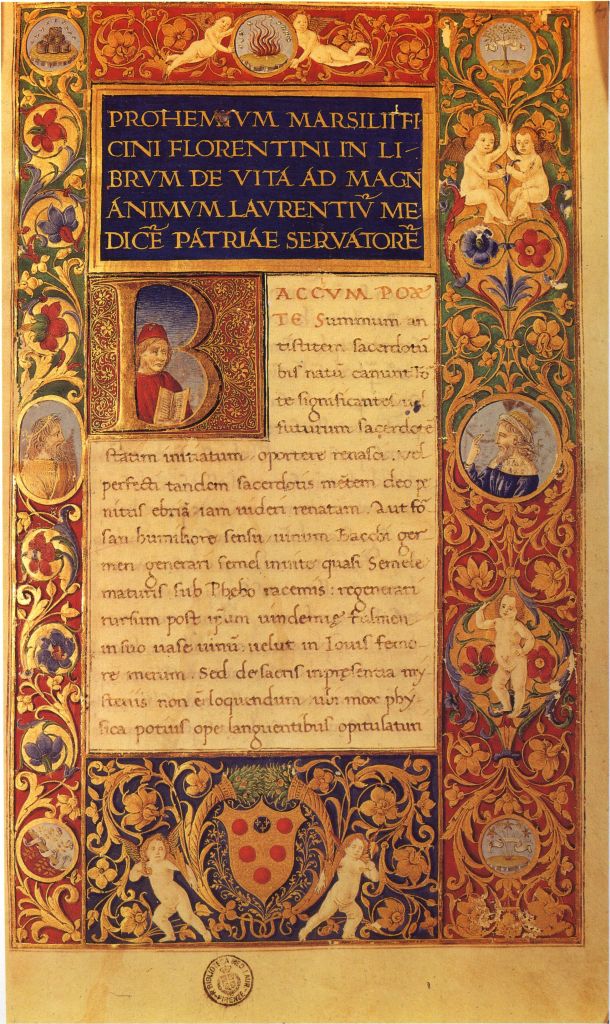 PROHEMIVM MARSILII FI
CINI FLORENTINI IN LI-
BRVM DE VITA AD MAGN
ANIMVM LAVRENTIV̄ ME
DICĒ PATRIAE SERVATORĒ
BACCVM POAE
TE Summum an
tistitem sacerdotū
bis natū canunt Fo
te significantes uel
futurum sacerdotē
statim initiatum oportere renasci. Vel
perfecti tandem sacerdotis mētem deo pe
nitus ebriā iam uideri renatam. Aut fo
san humiliore sensu uinum Bacchi ger
men generari semel in uite quasi Semele
maturis sub Phebo racemis: regenerari
rursum post ipsum uindemie fulmen
in suo uase uinū: uelut in Iouis femo
re merum. Sed de sacris inpresentia my
steriis non ē loquendum ubi mox phy
sica potius ope languentibus opitulaturi